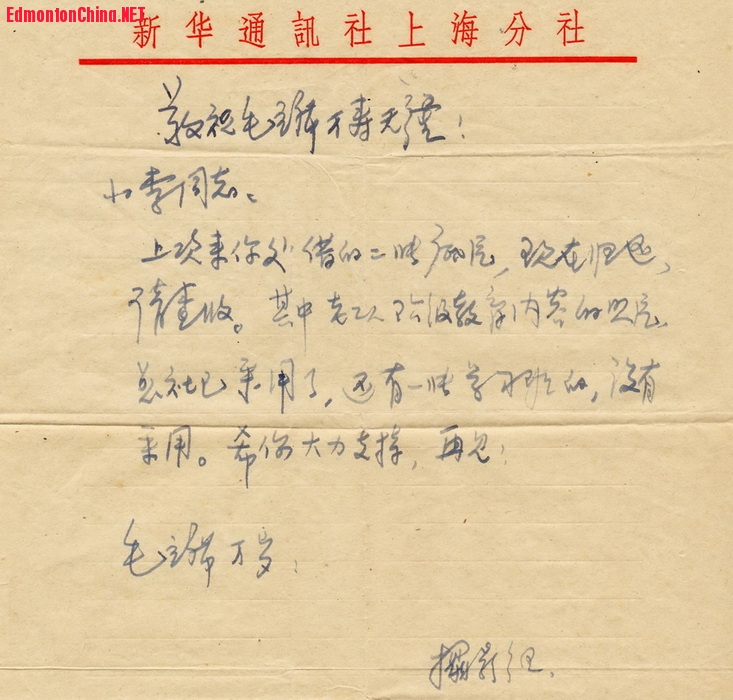 EdmontonChina.NET
新华通訊社上海分社
敬祝毛主席万寿无疆！
小李同志：
上次来你处借的二张底片，现在归还，
请查收。其中老工人阶级教育内容的照片，
总社已采用了，还有一张学习班的，没有
采用。希你大力支持，再见！
毛主席万岁！
摄影组.